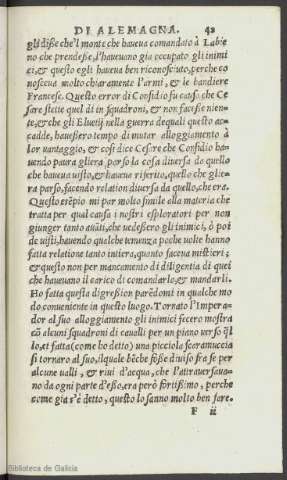 DI ALEMAGNA. 42
gli diße che'l monte che haveva comandato à Labie
no che prendeße, l'havevano gia occupato gli inimi
ci, & questo egli haveva ben riconosciuto, perche co
nosceua molto chiaramente l'armi, & le bandiere
Francese. Questo error di Considio fu causa, che Ce
sare stette quel dì in squadroni, & non faceße nien-
te, & che gli Eluetij nella guerra dequali questo ac-
cadde, haueßero tempo di mutar alloggiamento à
lor vantaggio, & cosi dice Cesare che Considio ha-
uendo paura gliera, parso la cosa diuersa da quello
che haueua uisto, & haueua riferito, quello che glie-
ra parso, facendo relation diuersa da quello, che era.
Questo esẽpio mi par molto simile alla materia che
tratta per qual causa i nostri esploratori per non
giunger tanto auãti, che uedeßero gli inimici, ò poi
de uisti, hauendo qualche temenza poche uolte hanno
fatta relatione tanto intiera, quanto facea mistieri;
& questo non per mancamento di diligentia di quei
che haueuano il carico di comandarlo, & mandarli.
Ho fatta questa digreßion parẽdomi in qualche mo
do conueniente in questo luogo. Tornato l'Impera-
dor al suo alloggiamento gli inimici fecero mostra
cõ alcuni squadroni di caualli per un piano verso q̃l
lo, et fatta (come ho detto) una picciola scaramuccia
si tornaro al suo, il quale bẽche foße diuiso fra se per
alcune ualli, & riui d'acqua, che l'atirauersaua-
no da ogni parte d'eßo, era però fortißimo, perche
come gia s'è detto, questo lo sanno molto ben fare.
F ii
Biblioteca de Galicia